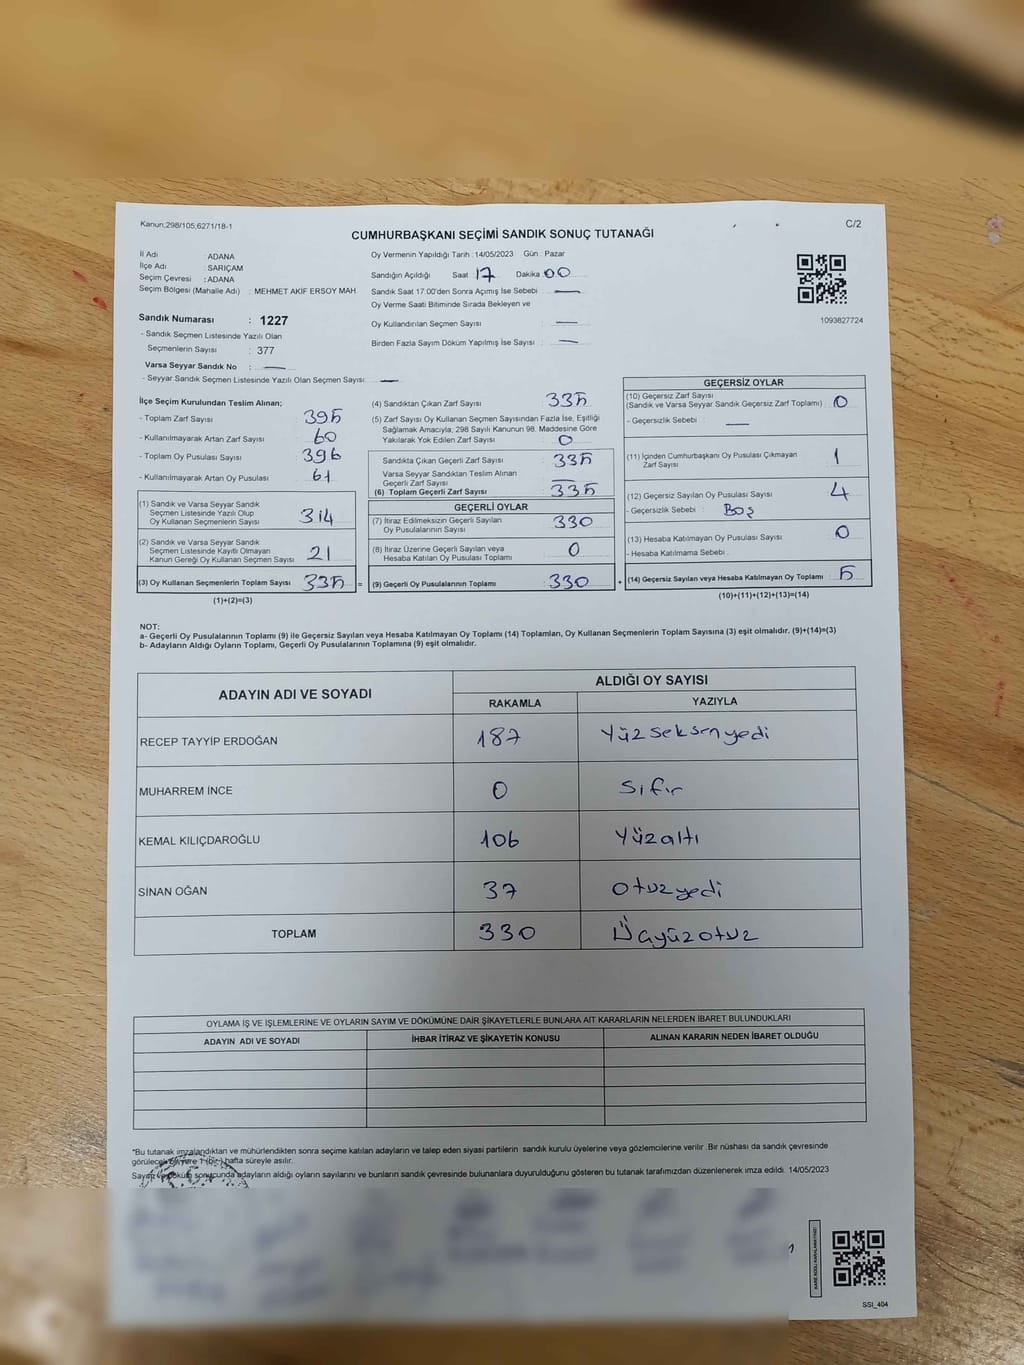 Kanun;298/105;6271/18-1
C/2
CUMHURBAŞKANI SEÇİMİ SANDIK SONUÇ TUTANAĞI
İl Adı : ADANA
İlçe Adı : SARIÇAM
Seçim Çevresi : ADANA
Seçim Bölgesi (Mahalle Adı) : MEHMET AKİF ERSOY MAH.
Oy Vermenin Yapıldığı Tarih :14/05/2023 Gün : Pazar
Sandığın Açıldığı Saat :17 Dakika 00
Sandık Saat 17:00'den Sonra Açımış İse Sebebi : —
Oy Verme Saati Bitiminde Sırada Bekleyen ve
Oy Kullandırılan Seçmen Sayısı : —
Birden Fazla Sayım Döküm Yapılmış İse Sayısı : —
1093827724
Sandık Numarası : 1227
- Sandık Seçmen Listesinde Yazılı Olan
Seçmenlerin Sayısı : 377
Varsa Seyyar Sandık No : —
- Seyyar Sandık Seçmen Listesinde Yazılı Olan Seçmen Sayısı: —
İlçe Seçim Kurulundan Teslim Alınan;
- Toplam Zarf Sayısı : 395
- Kullanılmayarak Artan Zarf Sayısı : 60
- Toplam Oy Pusulası Sayısı : 396
- Kullanılmayarak Artan Oy Pusulası : 61
(1) Sandık ve Varsa Seyyar Sandık
Seçmen Listesinde Yazılı Olup
Oy Kullanan Seçmenlerin Sayısı : 314
(2) Sandık ve Varsa Seyyar Sandık
Seçmen Listesinde Kayıtlı Olmayan
Kanun Gereği Oy Kullanan Seçmen Sayısı : 21
(3) Oy Kullanan Seçmenlerin Toplam Sayısı : 335 =
(1)+(2)=(3)
(4) Sandıktan Çıkan Zarf Sayısı : 335
(5) Zarf Sayısı Oy Kullanan Seçmen Sayısından Fazla İse, Eşitliği
Sağlamak Amacıyla; 298 Sayılı Kanunun 98. Maddesine Göre
Yakılarak Yok Edilen Zarf Sayısı : 0
Sandıkta Çıkan Geçerli Zarf Sayısı : 335
Varsa Seyyar Sandıktan Teslim Alınan
Geçerli Zarf Sayısı : —
(6) Toplam Geçerli Zarf Sayısı : 335
GEÇERLİ OYLAR
(7) İtiraz Edilmeksizin Geçerli Sayılan
Oy Pusulalarının Sayısı : 330
(8) İtiraz Üzerine Geçerli Sayılan veya
Hesaba Katılan Oy Pusulası Toplamı : 0
(9) Geçerli Oy Pusulalarının Toplamı : 330 +
GEÇERSİZ OYLAR
(10) Geçersiz Zarf Sayısı
(Sandık ve Varsa Seyyar Sandık Geçersiz Zarf Toplamı) : 0
- Geçersizlik Sebebi : —
(11) İçinden Cumhurbaşkanı Oy Pusulası Çıkmayan
Zarf Sayısı : 1
(12) Geçersiz Sayılan Oy Pusulası Sayısı : 4
- Geçersizlik Sebebi : Boş
(13) Hesaba Katılmayan Oy Pusulası Sayısı : 0
- Hesaba Katılmama Sebebi :
(14) Geçersiz Sayılan veya Hesaba Katılmayan Oy Toplamı : 5
(10)+(11)+(12)+(13)=(14)
NOT:
a- Geçerli Oy Pusulalarının Toplamı (9) ile Geçersiz Sayılan veya Hesaba Katılmayan Oy Toplamı (14) Toplamları, Oy Kullanan Seçmenlerin Toplam Sayısına (3) eşit olmalıdır. (9)+(14)=(3)
b- Adayların Aldığı Oyların Toplamı, Geçerli Oy Pusulalarının Toplamına (9) eşit olmalıdır.
ADAYIN ADI VE SOYADI ALDIĞI OY SAYISI
RAKAMLA YAZIYLA
RECEP TAYYİP ERDOĞAN 187 Yüzseksenyedi
MUHARREM İNCE 0 Sıfır
KEMAL KILIÇDAROĞLU 106 Yüzaltı
SİNAN OĞAN 37 Otuzyedi
TOPLAM 330 Üçyüzotuz
OYLAMA İŞ VE İŞLEMLERİNE VE OYLARIN SAYIM VE DÖKÜMÜNE DAİR ŞİKAYETLERLE BUNLARA AİT KARARLARIN NELERDEN İBARET BULUNDUKLARI
ADAYIN ADI VE SOYADI İHBAR İTİRAZ VE ŞİKAYETİN KONUSU ALINAN KARARIN NEDEN İBARET OLDUĞU
*Bu tutanak imzalandıktan ve mühürlendikten sonra seçime katılan adayların ve talep eden siyasi partilerin sandık kurulu üyelerine veya gözlemcilerine verilir. Bir nüshası da sandık çevresinde
görülecek bir yere 1 (bir) hafta süreyle asılır.
Sayım ve döküm sonucunda adayların aldığı oyların sayılarını ve bunların sandık çevresinde bulunanlara duyurulduğunu gösteren bu tutanak tarafımızdan düzenlenerek imza edildi. 14/05/2023
SSI_404